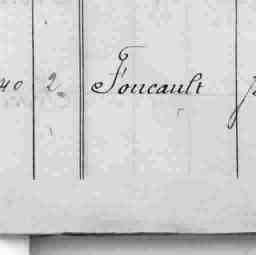 40 2 Foucault